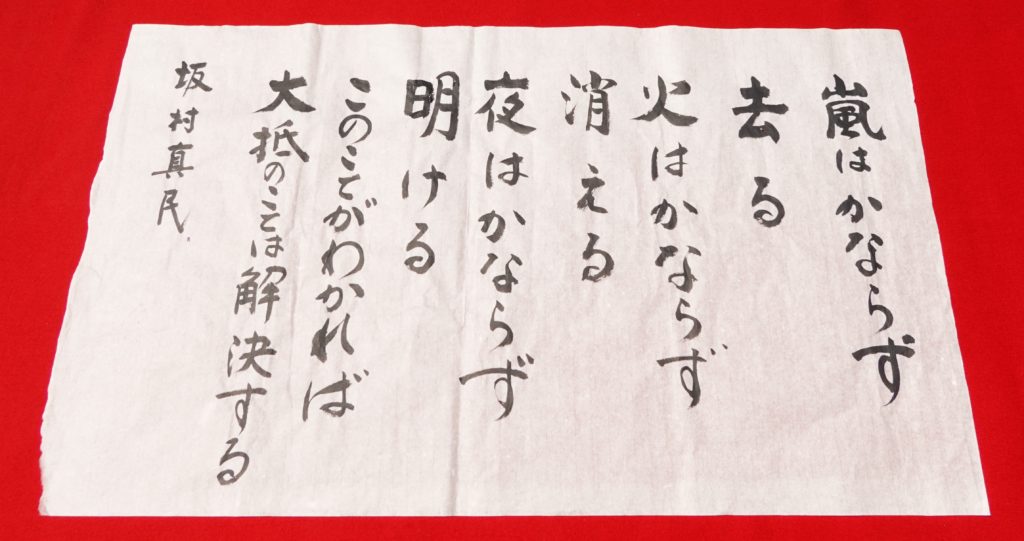 嵐はかならず
去る
火はかならず
消える
夜はかならず
明ける
このことがわかれば
大抵のことは解決する
坂村真民